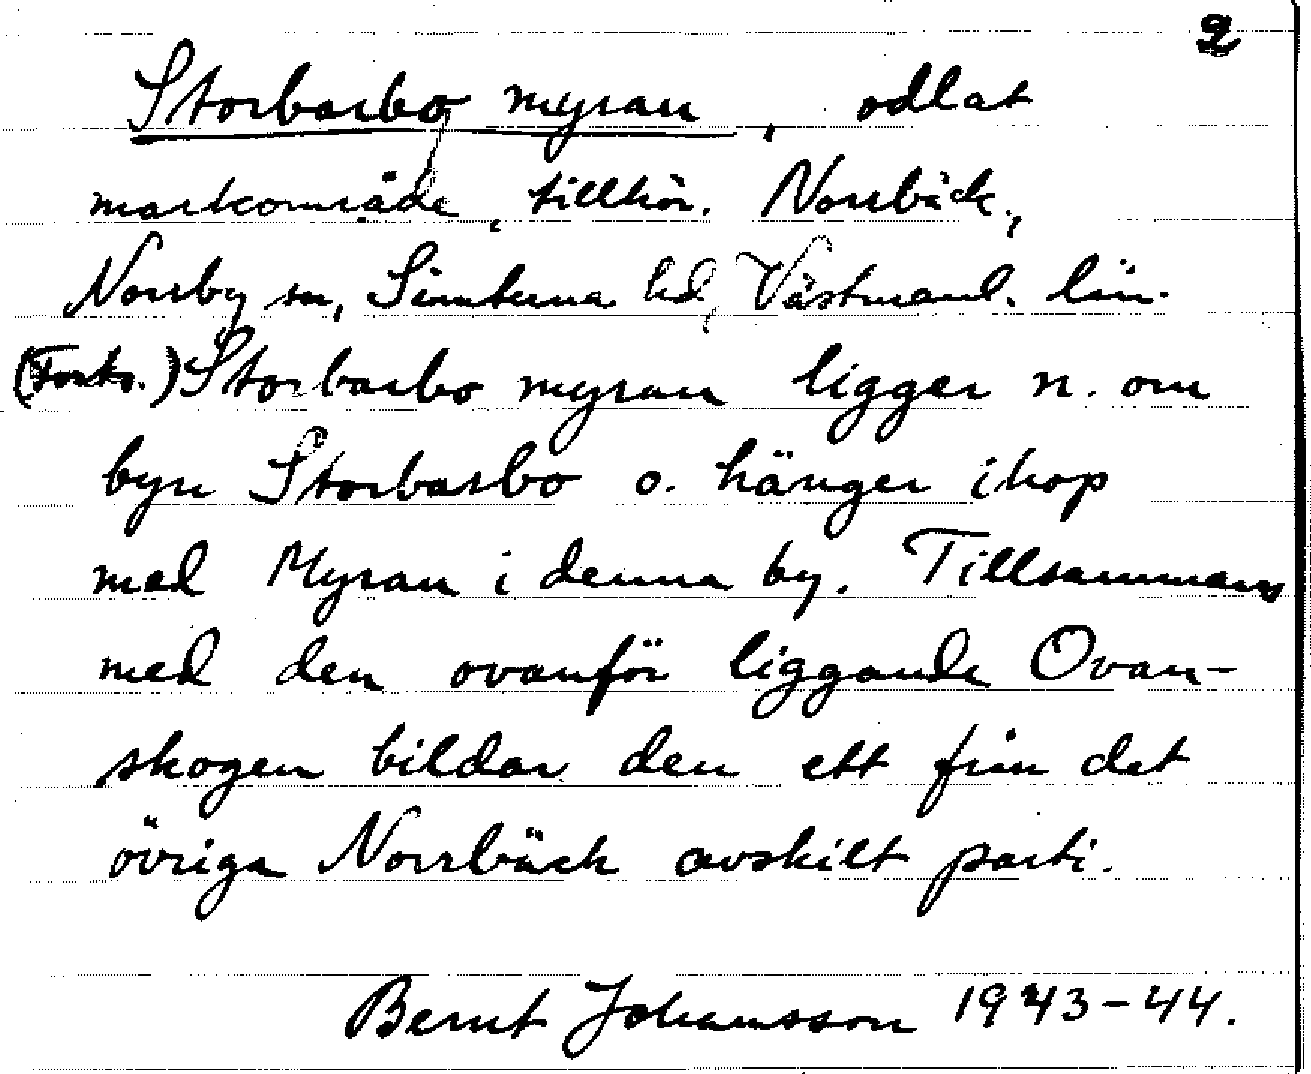 2
Storbarbo myran, odlat
markområde, tillhör. Norrbäck,
Norrby sn, Simtuna hd, Västmanl. län.
(Forts.) Storbarbo myran ligger n. om
byn Storbarbo o. hänger ihop
med Myran i denna by. Tillsammans
med den ovanför liggande Ovan-
skogen bildar den ett från det
övriga Norrbäck avskilt parti.
Bernt Johansson 1943-44.